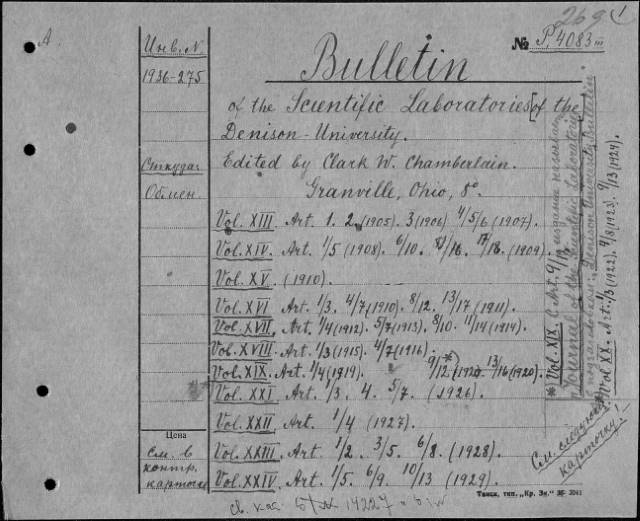 269 1
A
Инв. N.
1936-275
№ P, 4083 III
Bulletin
of the Scientific Laboratories [of the
Denison-University.
Откуда:
Обмен.
Edited by Clark W. Chamberlain.
Granville, Ohio, 8°.
Vol. XIII. Art. 1. 2. (1905). 3 (1906) 4/5/6 (1907).
Vol. XIV. Art. 1/5 (1908). 6/10. 11/16. 17/18. (1909).
Vol. XV. (1910).
Vol. XVI. Art. 1/3. 4/7 (1910). 8/12. 13/17 (1911).
Vol. XVII. Art. 1/4 (1912). 5/7 (1913). 8/10. 11/14 (1914).
Vol. XVIII. Art. 1/3 (1915). 4/7 (1916).
Vol. XIX. Art. 1/4 (1919). 9/12 *) (1920. 13/16 (1920).
Vol. XXI Art. 1/3. 4. 5/7. (1926).
Vol. XXII Art. 1/4 (1927).
Vol. XXIII. Art. 1/2. 3/5. 6/8. (1928).
Vol. XXIV. Art. 1/5. 6/9. 10/13 (1929).
Цена
См. в
контр.
карточке
*) Vol. XIX. С Art. 9/ издание
Journal of the Scientific Laboratories
Denison University Bulletin.
Vol XX. Art. 1/3 (1922). 4/8 (1923). 9/13 (1924).
См. следующую
карточку!
Танск, тип. „Кр. Зн."
14227